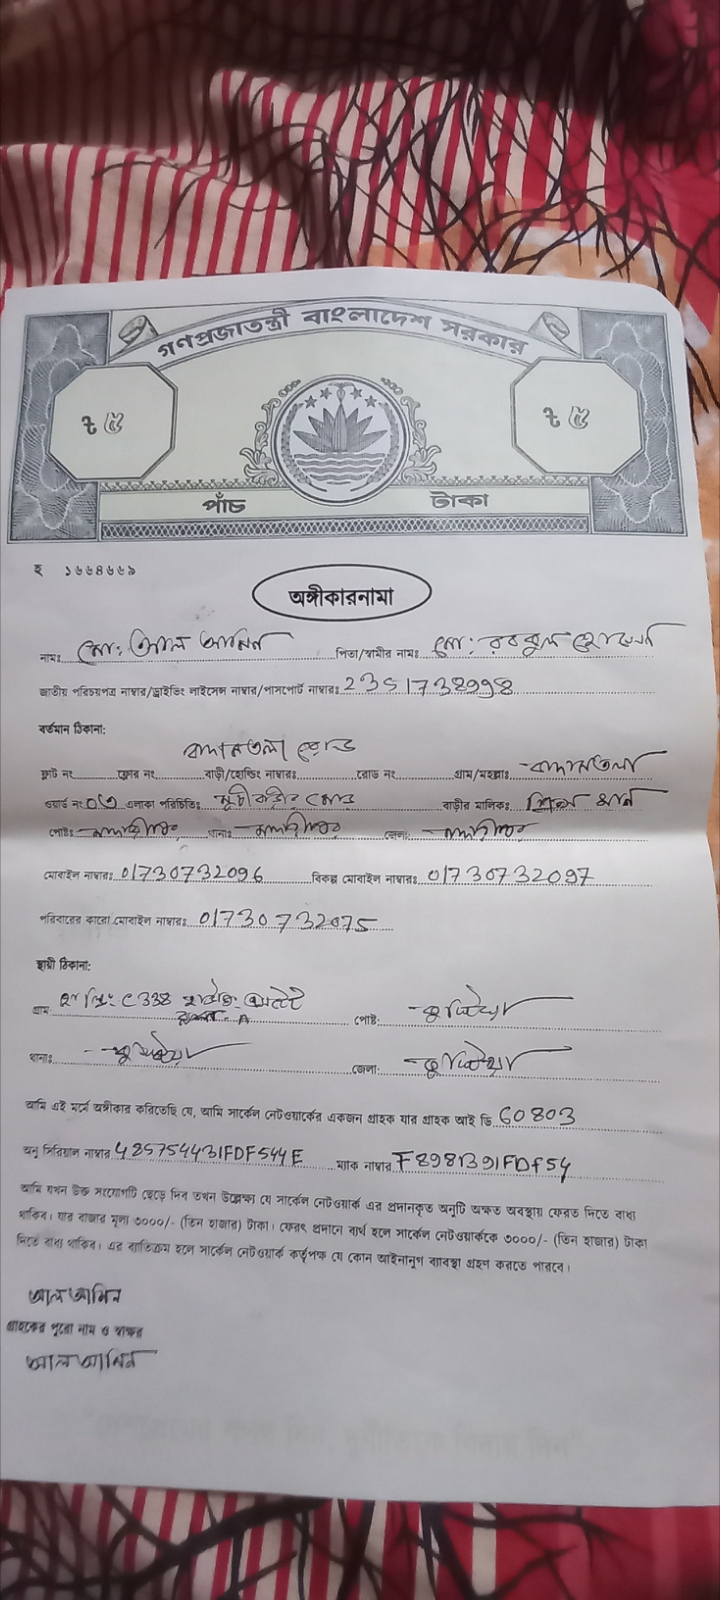 গণপ্রজাতন্ত্রী বাংলাদেশ সরকার
৳ ৫ ৳ ৫
পাঁচ টাকা
হ ১৬৬৪৬৬৯
অঙ্গীকারনামা
নামঃ মো: আল আমিন পিতা/স্বামীর নামঃ মো:
জাতীয় পরিচয়পত্র নাম্বার/ড্রাইভিং লাইসেন্স নাম্বার/পাসপোর্ট নাম্বারঃ 2351738998
বর্তমান ঠিকানা:
বাদামতলা রোড
ফ্লাট নং ফ্লোর নং বাড়ী/হোল্ডিং নাম্বারঃ রোড নং গ্রাম/মহল্লাঃ বাদামতলা
ওয়ার্ড নং ০৩ এলাকা পরিচিতিঃ বাড়ীর মালিকঃ
পোষ্টঃ থানাঃ জেলা:
মোবাইল নাম্বারঃ 01730732096 বিকল্প মোবাইল নাম্বারঃ 01730732097
পরিবারের কারো মোবাইল নাম্বারঃ 01730732075
স্থায়ী ঠিকানা:
গ্রাম: C338 হাউজিং এস্টেট পোষ্ট: কুষ্টিয়া
থানাঃ কুষ্টিয়া জেলা: কুষ্টিয়া
আমি এই মর্মে অঙ্গীকার করিতেছি যে, আমি সার্কেল নেটওয়ার্কের একজন গ্রাহক যার গ্রাহক আই ডি 60803
অনু সিরিয়াল নাম্বার 485754431FDF544E ম্যাক নাম্বার F8981391FDF54
আমি যখন উক্ত সংযোগটি ছেড়ে দিব তখন উল্লেক্ষ্য যে সার্কেল নেটওয়ার্ক এর প্রদানকৃত অনুটি অক্ষত অবস্থায় ফেরত দিতে বাধ্য
থাকিব। যার বাজার মূল্য ৩০০০/- (তিন হাজার) টাকা। ফেরৎ প্রদানে ব্যর্থ হলে সার্কেল নেটওয়ার্ককে ৩০০০/- (তিন হাজার) টাকা
দিতে বাধ্য থাকিব। এর ব্যতিক্রম হলে সার্কেল নেটওয়ার্ক কর্তৃপক্ষ যে কোন আইনানুগ ব্যাবস্থা গ্রহণ করতে পারবে।
আল আমিন
গ্রাহকের পুরো নাম ও স্বাক্ষর
আল আমিন